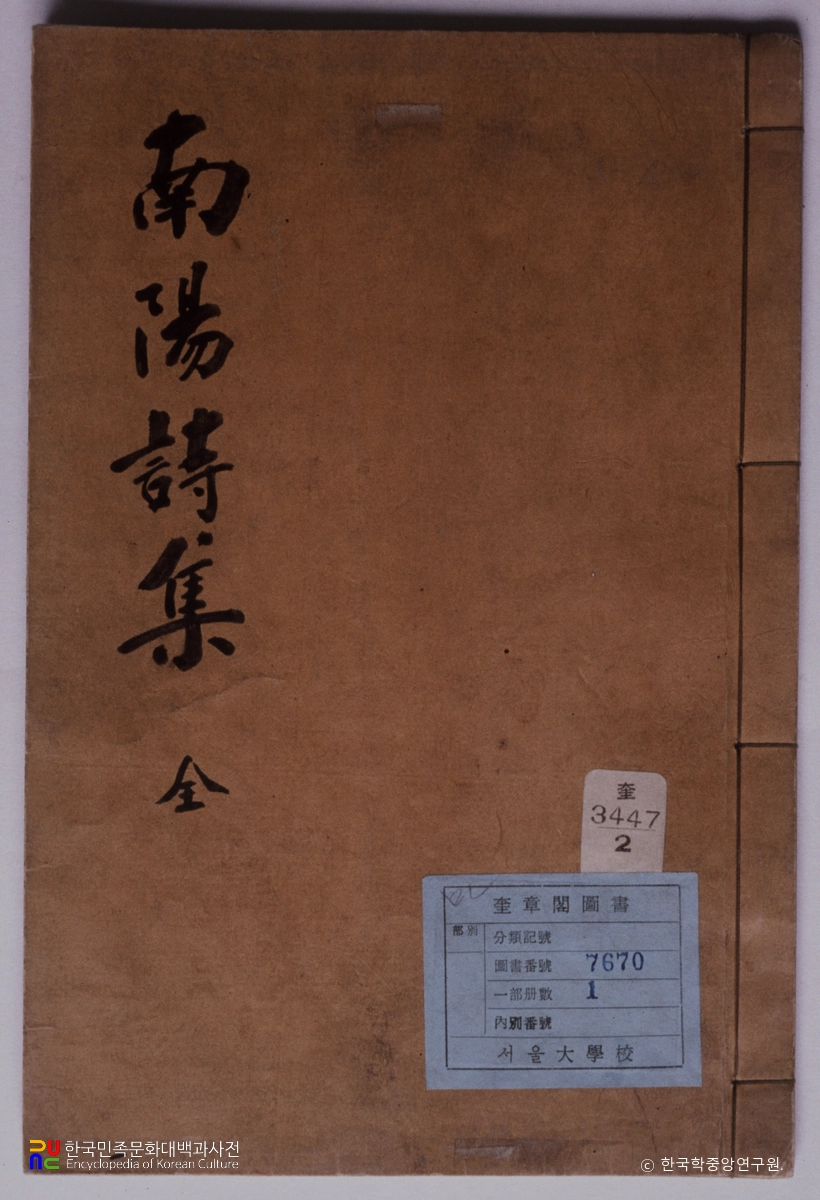 南陽詩集 全
奎
3447
2
奎章閣圖書
部別
分類記號
圖書番號 7670
一部册數 1
內別番號
서울大學校
한국민족문화대백과사전
Encyclopedia of Korean Culture
© 한국학중앙연구원